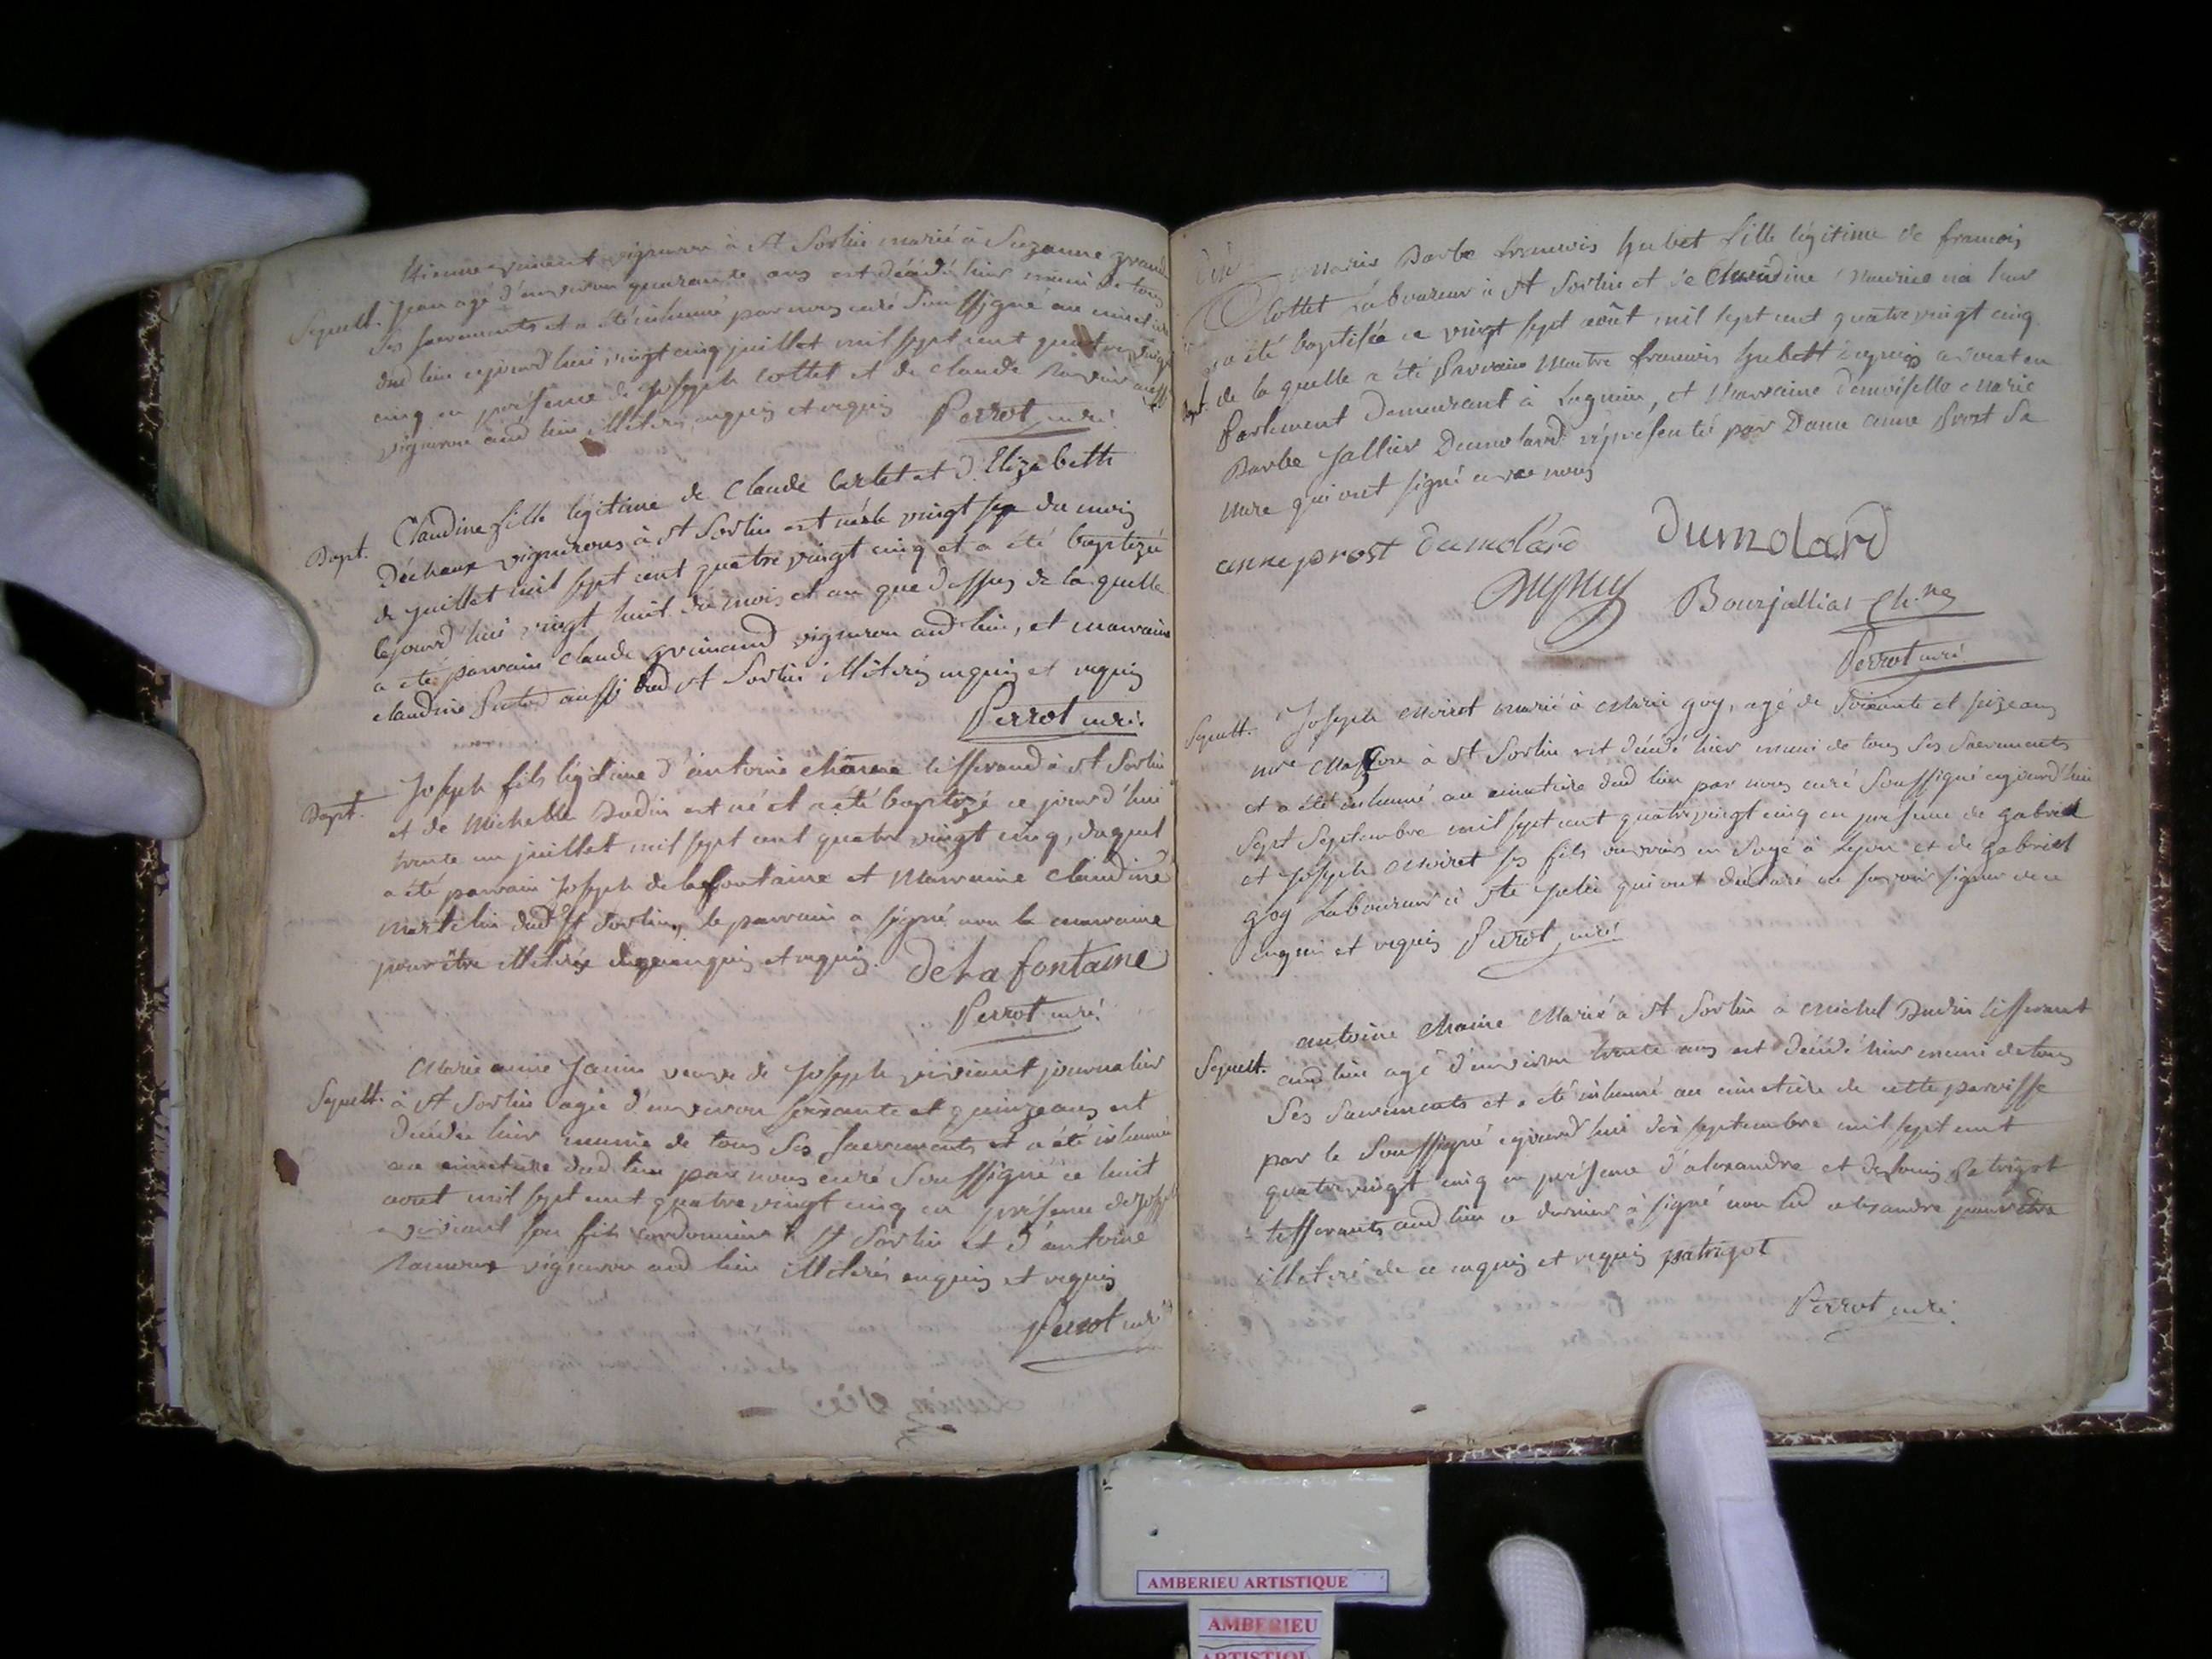 Etienne vincent vigneron à St Sorlin marié à Suzanne grand
Sepult. Jean agé d'environ quarante ans est décédé hier muni de tous
ses sacrements et a été inhumé par nous curé soussigné au cimetiere
dud lieu cejourd'hui vingt cinq juillet mil sept cent quatre vingt
cinq en présence de Joseph cottet et de claude aussi
vignerons aud lieu illitérés enquis et requis Perrot curé.
Bapt. Claudine fille légitime de Claude et d'Elizabeth
Déchaux vignerons à St Sorlin est née le vingt sept du mois
de juillet mil sept cent quatre vingt cinq et a été baptizée
cejourd'hui vingt huit du mois et an que dessus de laquelle
a été parrain claude grimaud vigneron aud lieu, et marraine
claudine aussi dud St Sorlin illitérés enquis et requis
Perrot curé.
Bapt. Joseph fils légitime d'antoine tisserand à St Sorlin
et de Michelle Dudin est né et a été baptizé ce jourd'hui
trente un juillet mil sept cent quatre vingt cinq, duquel
a été parrain Joseph de lafontaine et Marraine claudine
martelin dud St Sorlin, le parrain a signé non la marraine
pour être illitérée enquis et requis. de La fontaine
Perrot curé.
Marie anne Janin veuve de Joseph vivient journalier
Sepult. à St Sorlin agée d'environ soixante et quinze ans est
décédée hier munie de tous ses sacrements et a été inhumée
au cimetiere dud lieu par nous curé soussigné ce huit
aout mil sept cent quatre vingt cinq en présence de Joseph
vivient son fils cordonnier à St Sorlin et d'antoine
vigneron aud lieu illitérés enquis et requis
Perrot curé
Marie Barbe francoise hubet fille légitime de francois
Cottet Laboureur à St Sorlin et de Claudine née hier
a été baptisée ce vingt sept août mil sept cent quatre vingt cinq
Bapt. de laquelle a été Parrain Maitre francois hubett avocat en
Parlement demeurant à Lagnieu, et Marraine demoiselle Marie
Barbe Jallier Dumolard représentée par Dame anne Prost sa
mere qui ont signé avec nous
anne prost dumolard Dumolard
Dupuy Bourjallias Ch.ne
Perrot curé
Sepult. Joseph Moiret marié à Marie goy, agé de soixante et seize ans
mre Masson à St Sorlin est décédé hier muni de tous ses sacrements
et a été inhumé au cimetiere dud lieu par nous curé soussigné cejourd'hui
sept septembre mil sept cent quatre vingt cinq en présence de gabriel
et Joseph Moiret ses fils ouvriers en soye à Lyon et de gabriel
goy Laboureur à Ste Julie qui ont declaré ne savoir signer de ce
enquis et requis Perrot curé
antoine Marié à St Sorlin à Michel Dudin tisserant
Sepult. aud lieu agé d'environ trente ans est décédé hier muni de tous
ses sacrements et a été inhumé au cimetière de cette paroisse
par le soussigné cejourd'hui dix septembre mil sept cent
quatre vingt cinq en présence d'alexandre et de louis Patrigot
tisserants aud lieu ce dernier à signé non led alexandre pour être
illitéré de ce enquis et requis patrigot
Perrot curé.
AMBERIEU ARTISTIQUE
AMBERIEU
ARTISTIQUE